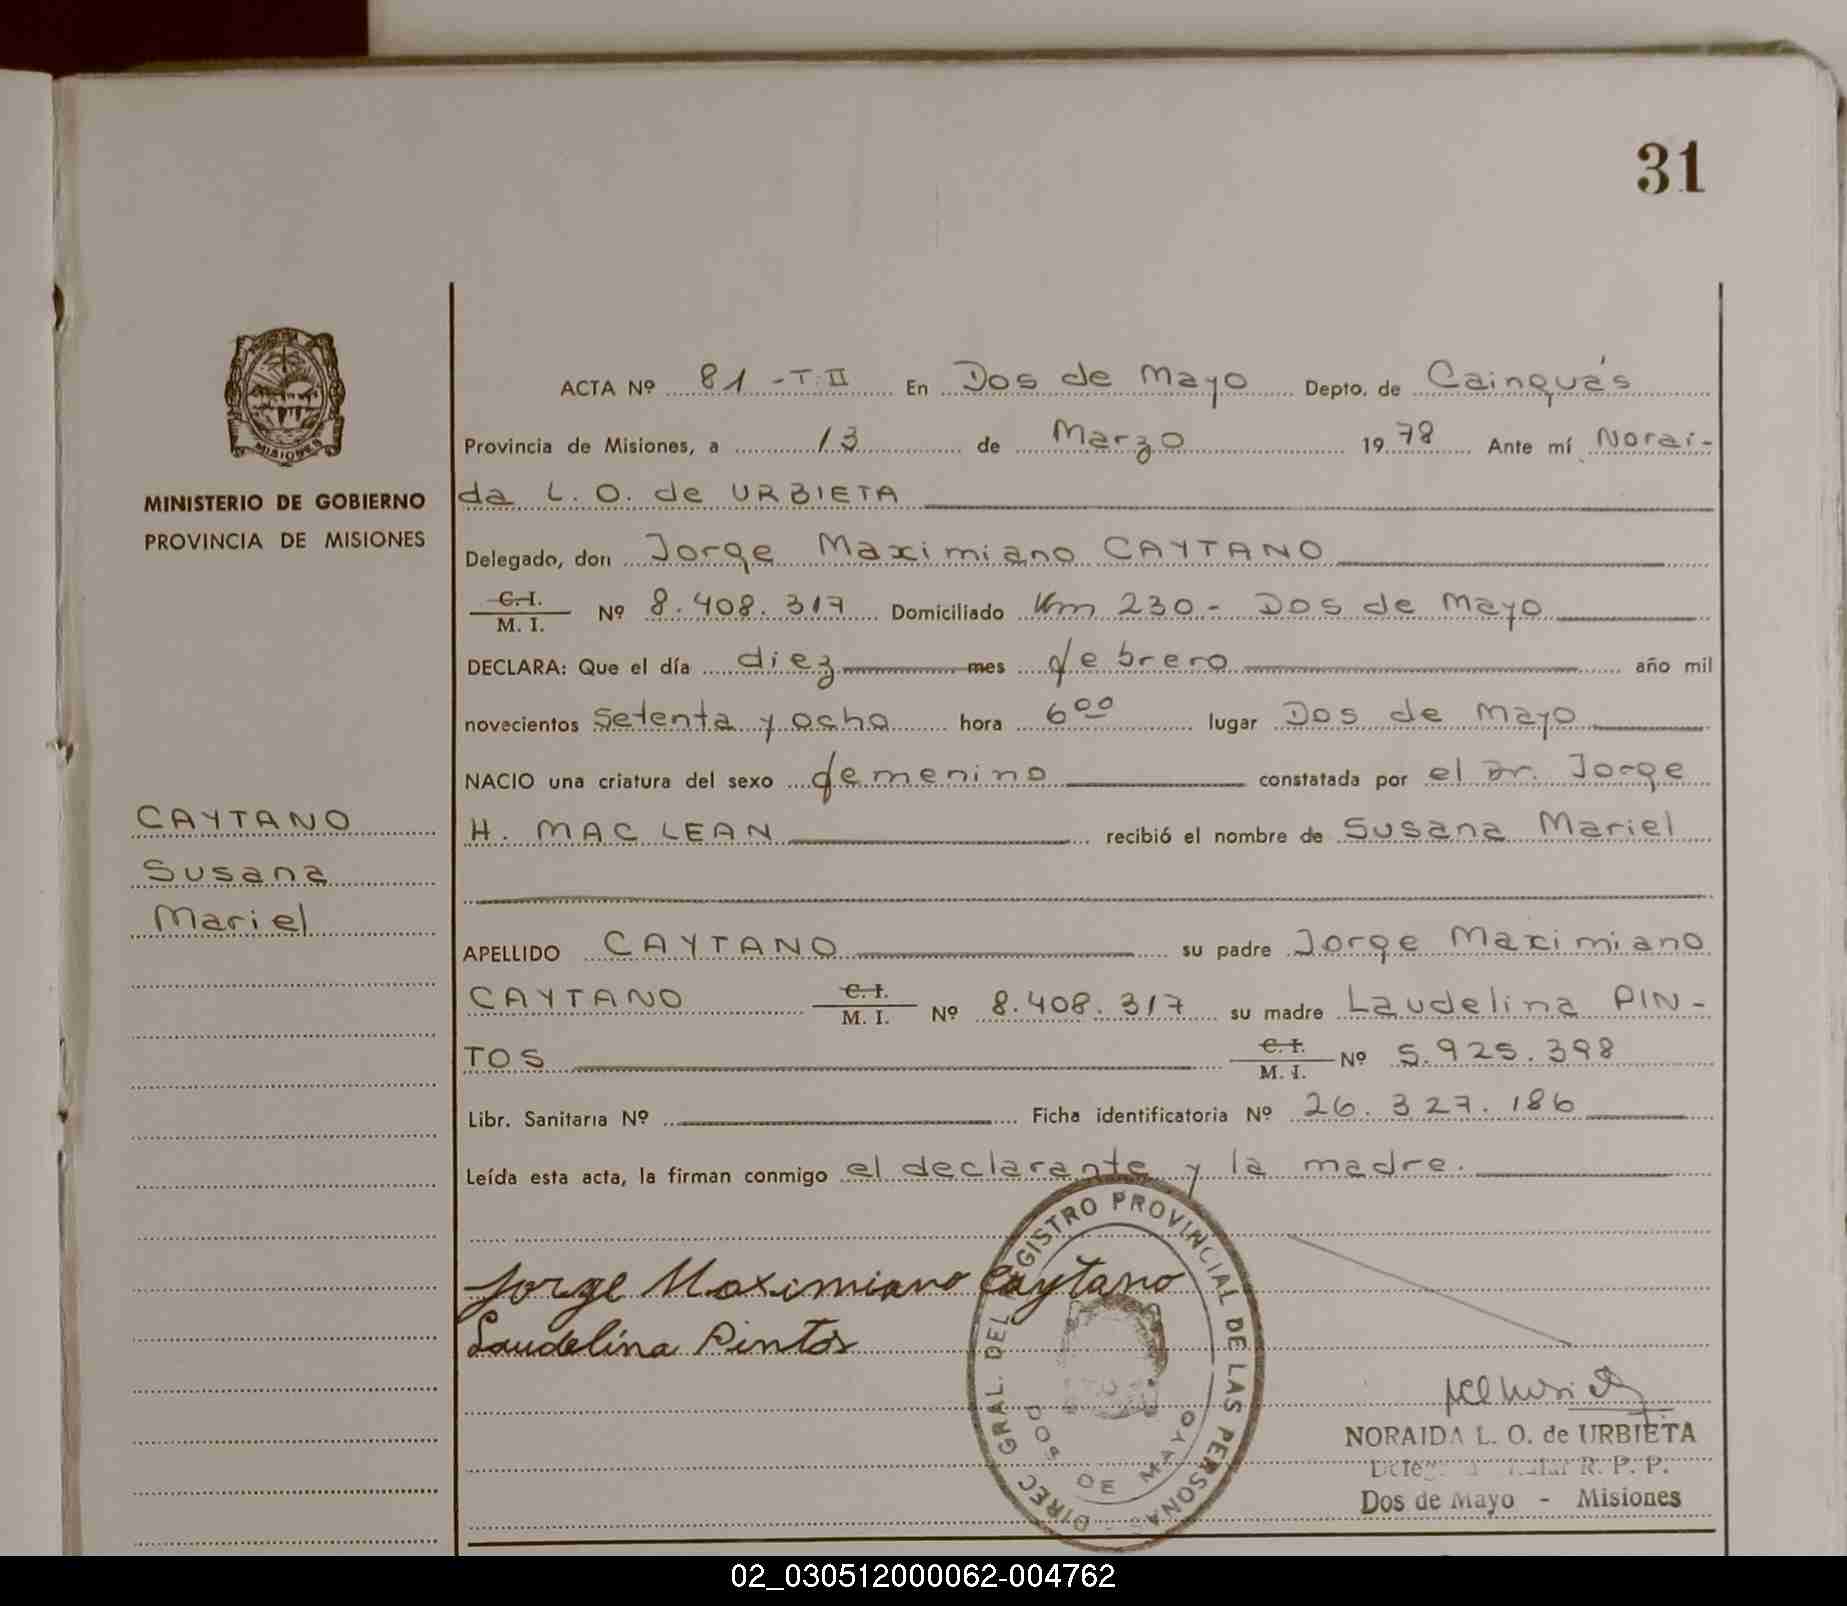 31
MISIONES
MINISTERIO DE GOBIERNO
PROVINCIA DE MISIONES
CAYTANO
Susana
Mariel
ACTA Nº 81 - T. II En Dos de Mayo Depto. de Cainguás
Provincia de Misiones, a 13 de Marzo 1978 Ante mí Norai-
da L. O. de URBIETA
Delegado, don Jorge Maximiano CAYTANO
C. I.
M. I. Nº 8.408.317 Domiciliado Km 230.- Dos de Mayo
DECLARA: Que el día diez mes febrero año mil
novecientos setenta y ocho hora 6⁰⁰ lugar Dos de Mayo
NACIO una criatura del sexo femenino constatada por el Dr. Jorge
H. MAC LEAN recibió el nombre de Susana Mariel
APELLIDO CAYTANO su padre Jorge Maximiano
CAYTANO C. I. M. I. Nº 8.408.317 su madre Laudelina PIN-
TOS C. I. M. I. Nº 5.925.398
Libr. Sanitaria Nº Ficha identificatoria Nº 26.327.186
Leída esta acta, la firman conmigo el declarante y la madre.
Jorge Maximiano Caytano
Laudelina Pintos
DIREC GRAL. DEL REGISTRO PROVINCIAL DE LAS PERSONAS
DOS DE MAYO
NORAIDA L. O. de URBIETA
R. P. P.
Dos de Mayo - Misiones
02_030512000062-004762